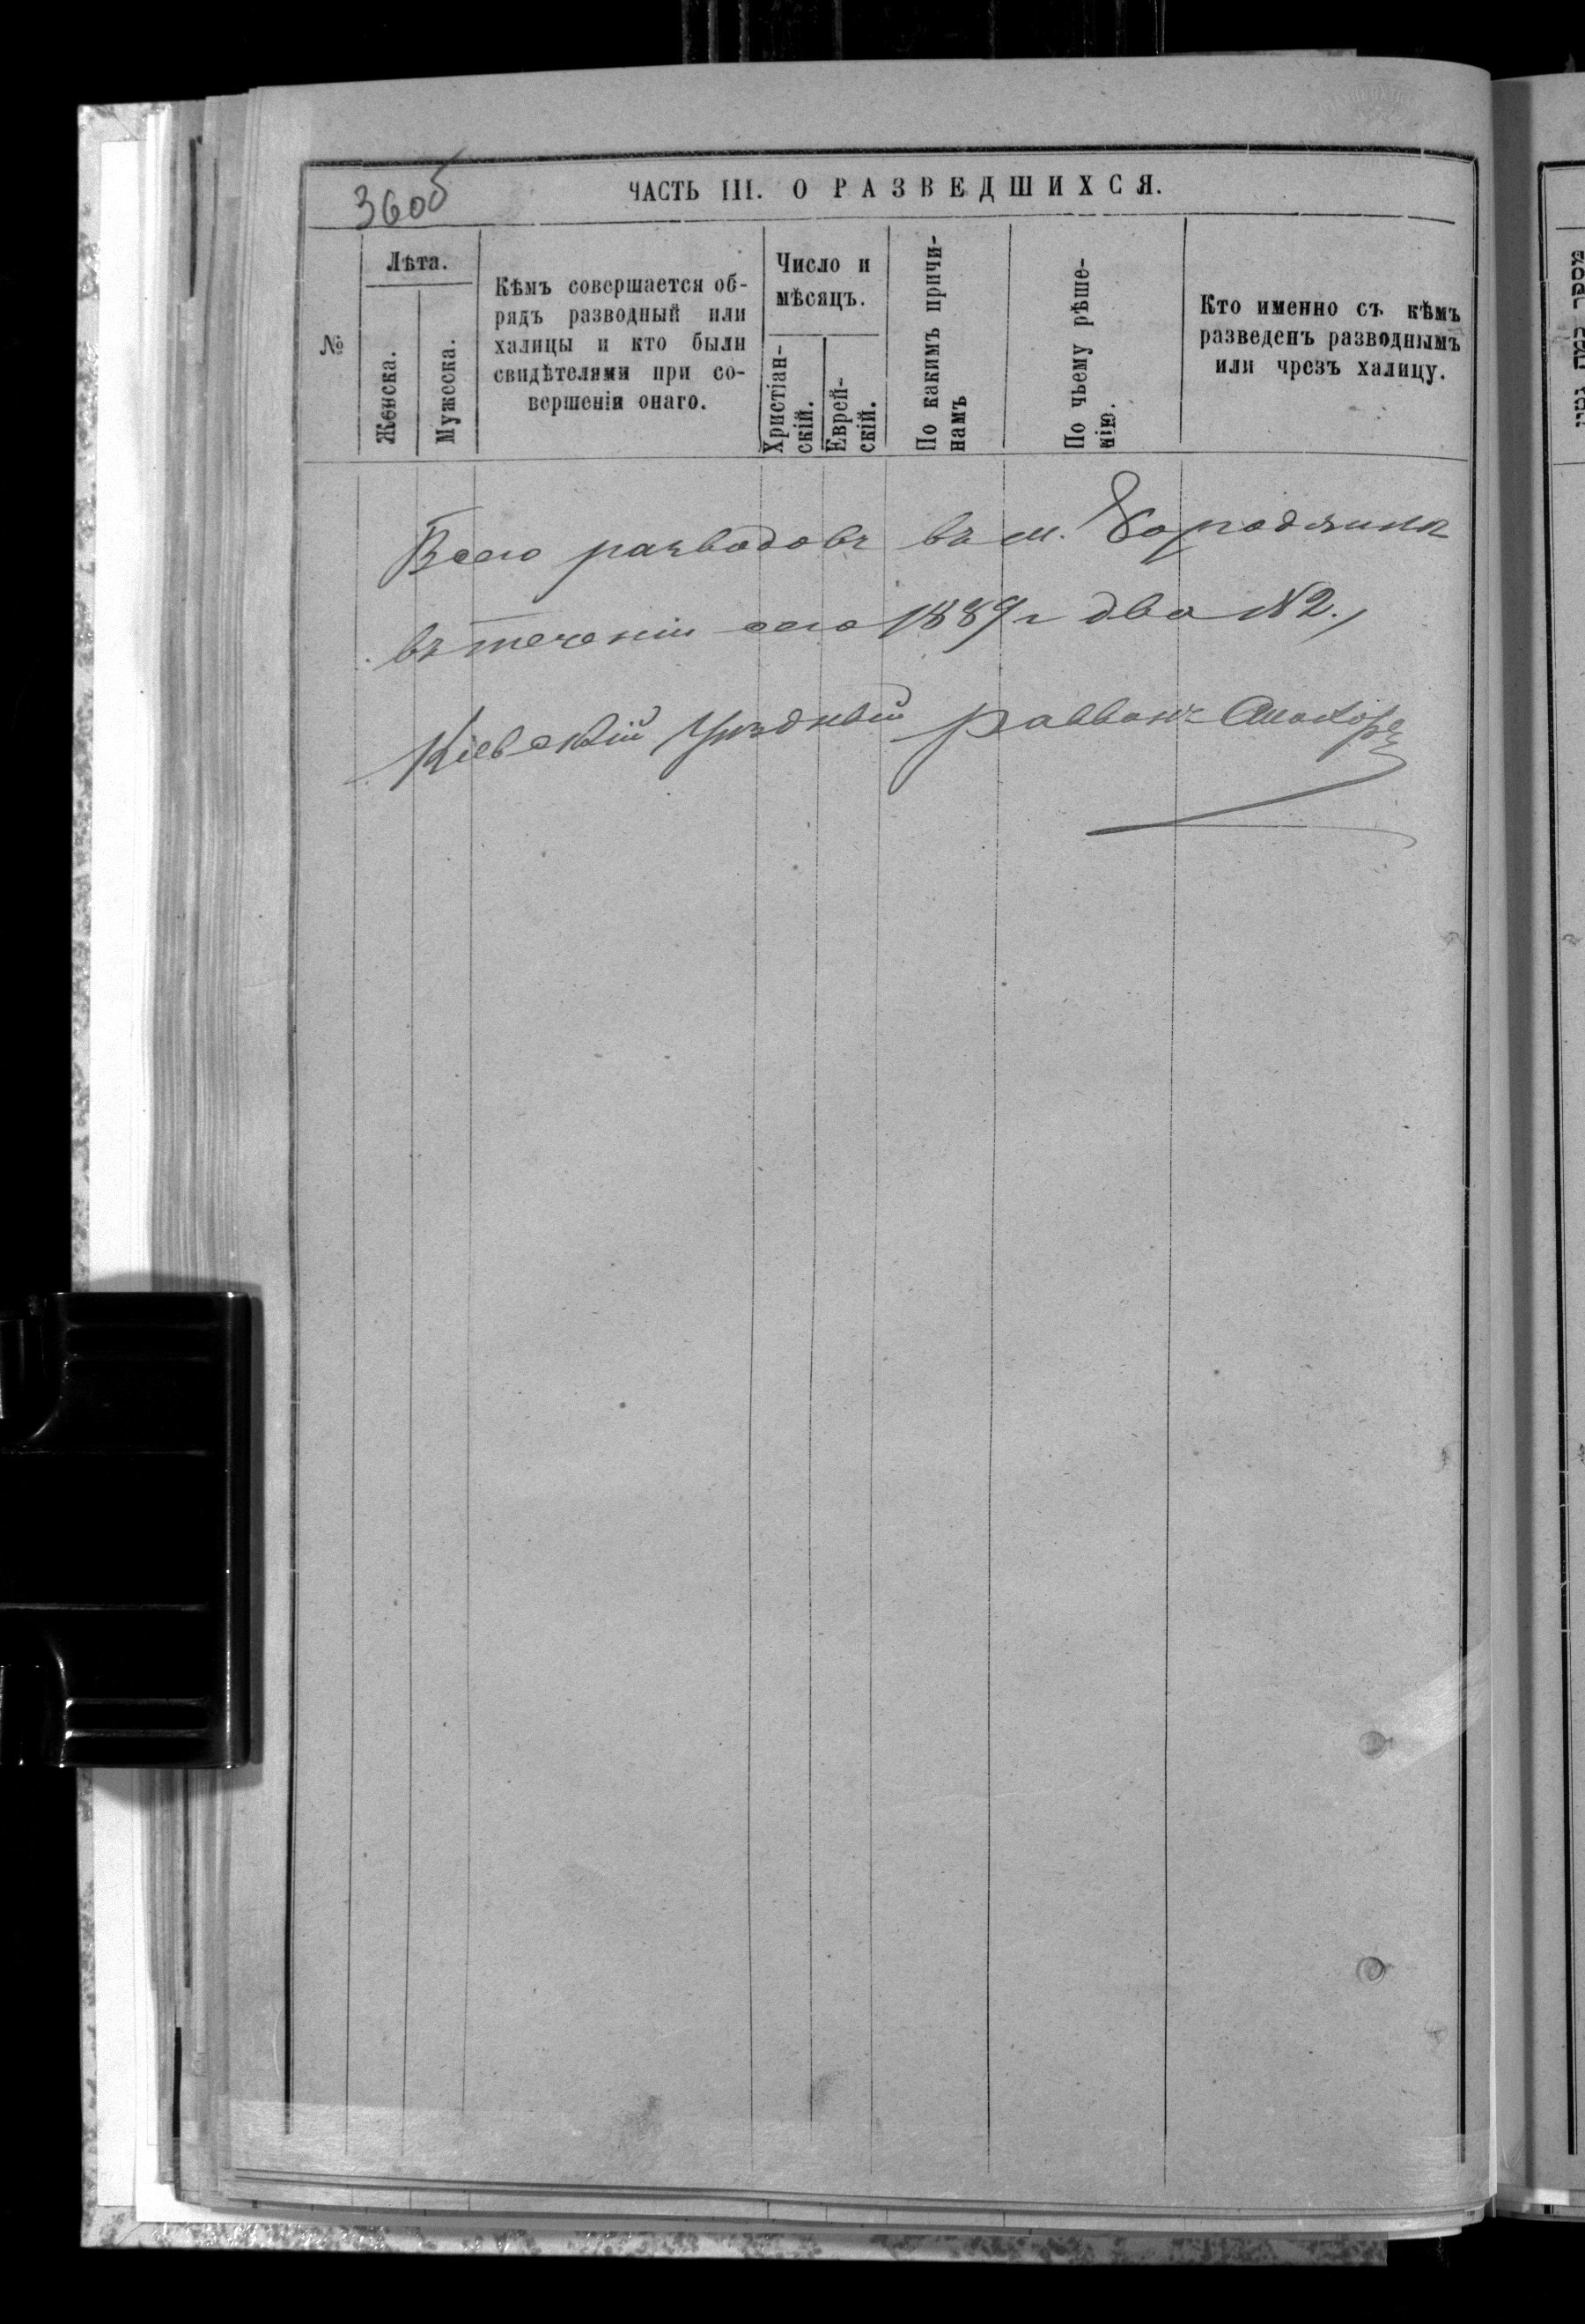 360об
ЧАСТЬ III. О РАЗВЕДШИХСЯ.
№
Лѣта.
Женска.
Мужеска.
Кѣмъ совершается об-
рядъ разводный или
халицы и кто были
свидѣтелями при со-
вершеніи онаго.
Число и
мѣсяцъ.
Христіан-
скій.
Еврей-
скій.
По какимъ причи-
намъ
По чьему рѣше-
нію.
Кто именно съ кѣмъ
разведенъ разводнымъ
или чрезъ халицу.
Всего разводовъ въ м. Бородянкѣ
въ теченіи сего 1889 г два №2.,
Кіевскій Уѣздный раввинъ